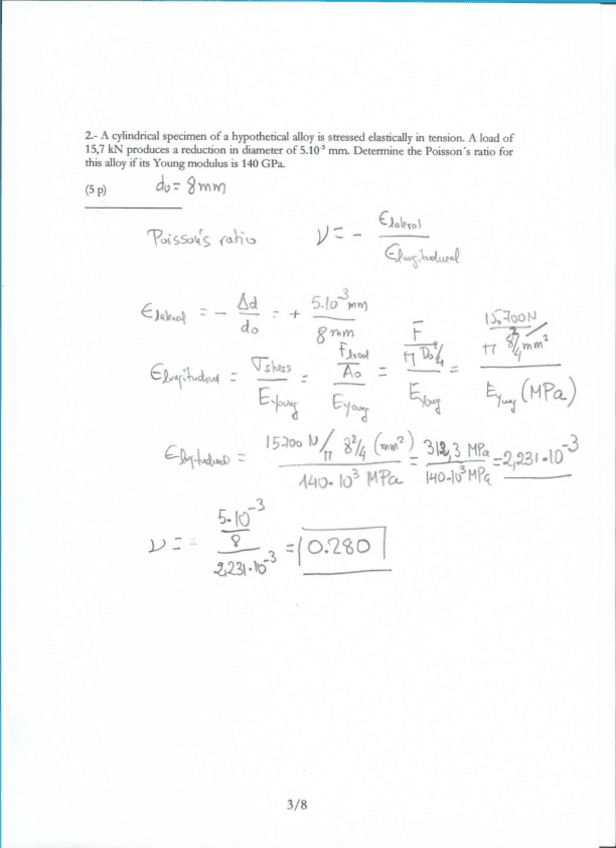 2.- A cylindrical specimen of a hypothetical alloy is stressed elastically in tension. A load of
15,7 kN produces a reduction in diameter of 5.10⁻³ mm. Determine the Poisson´s ratio for
this alloy if its Young modulus is 140 GPa.
(5 p) d₀ = 8mm
Poisson's ratio ν = - ε lateral / ε longitudinal
ε lateral = - Δd / d₀ = + 5.10⁻³ mm / 8 mm
ε longitudinal = (σ stress / E young) = (F load / A₀) / E young = (F / (π D₀²/4)) / E young = (15.700N / (π 8²/4 mm²)) / E young (MPa)
ε longitudinal = (15700 N / π 8²/4 (mm²)) / 140·10³ MPa = 312,3 MPa / 140·10³ MPa = 2,231·10⁻³
ν = - (5·10⁻³ / 8) / 2,231·10⁻³ = 0.280
3/8